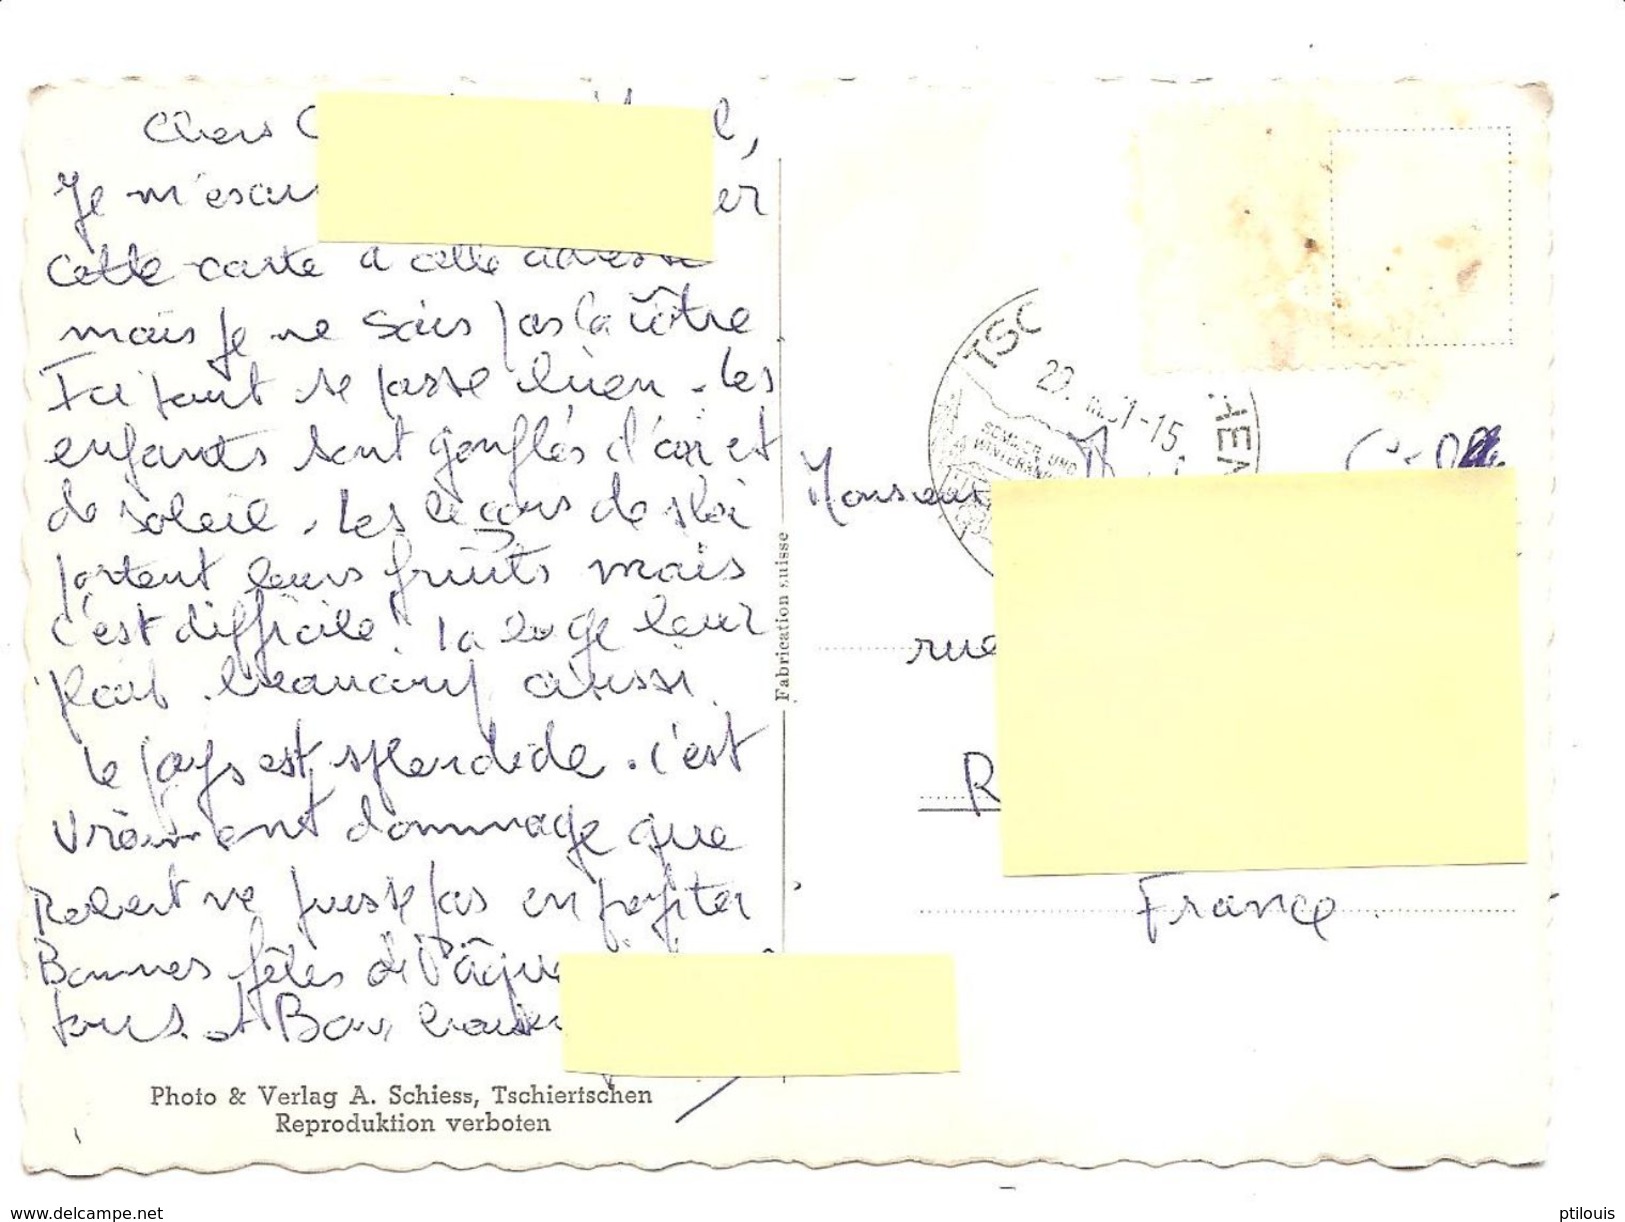 Chers
Je m'excus er
cette carte à cette adresse
mais je ne sais pas la vôtre
Ici tout se passe bien. Les
enfants sont gonflés d'air et
de soleil. Les leçons de ski
portent leurs fruits mais
c'est difficile! la luge leur
plait beaucoup aussi
Le pays est splendide. C'est
vraiment dommage que
Robert ne puisse pas en profiter
Bonnes fêtes de Pâque
tous. et Bons baiser
Photo & Verlag A. Schiess, Tschiertschen
Reproduktion verboten
Fabrication suisse
TSC HEN
SOMMER UND
Monsieur
rue
R
France.
www.delcampe.net
ptilouis